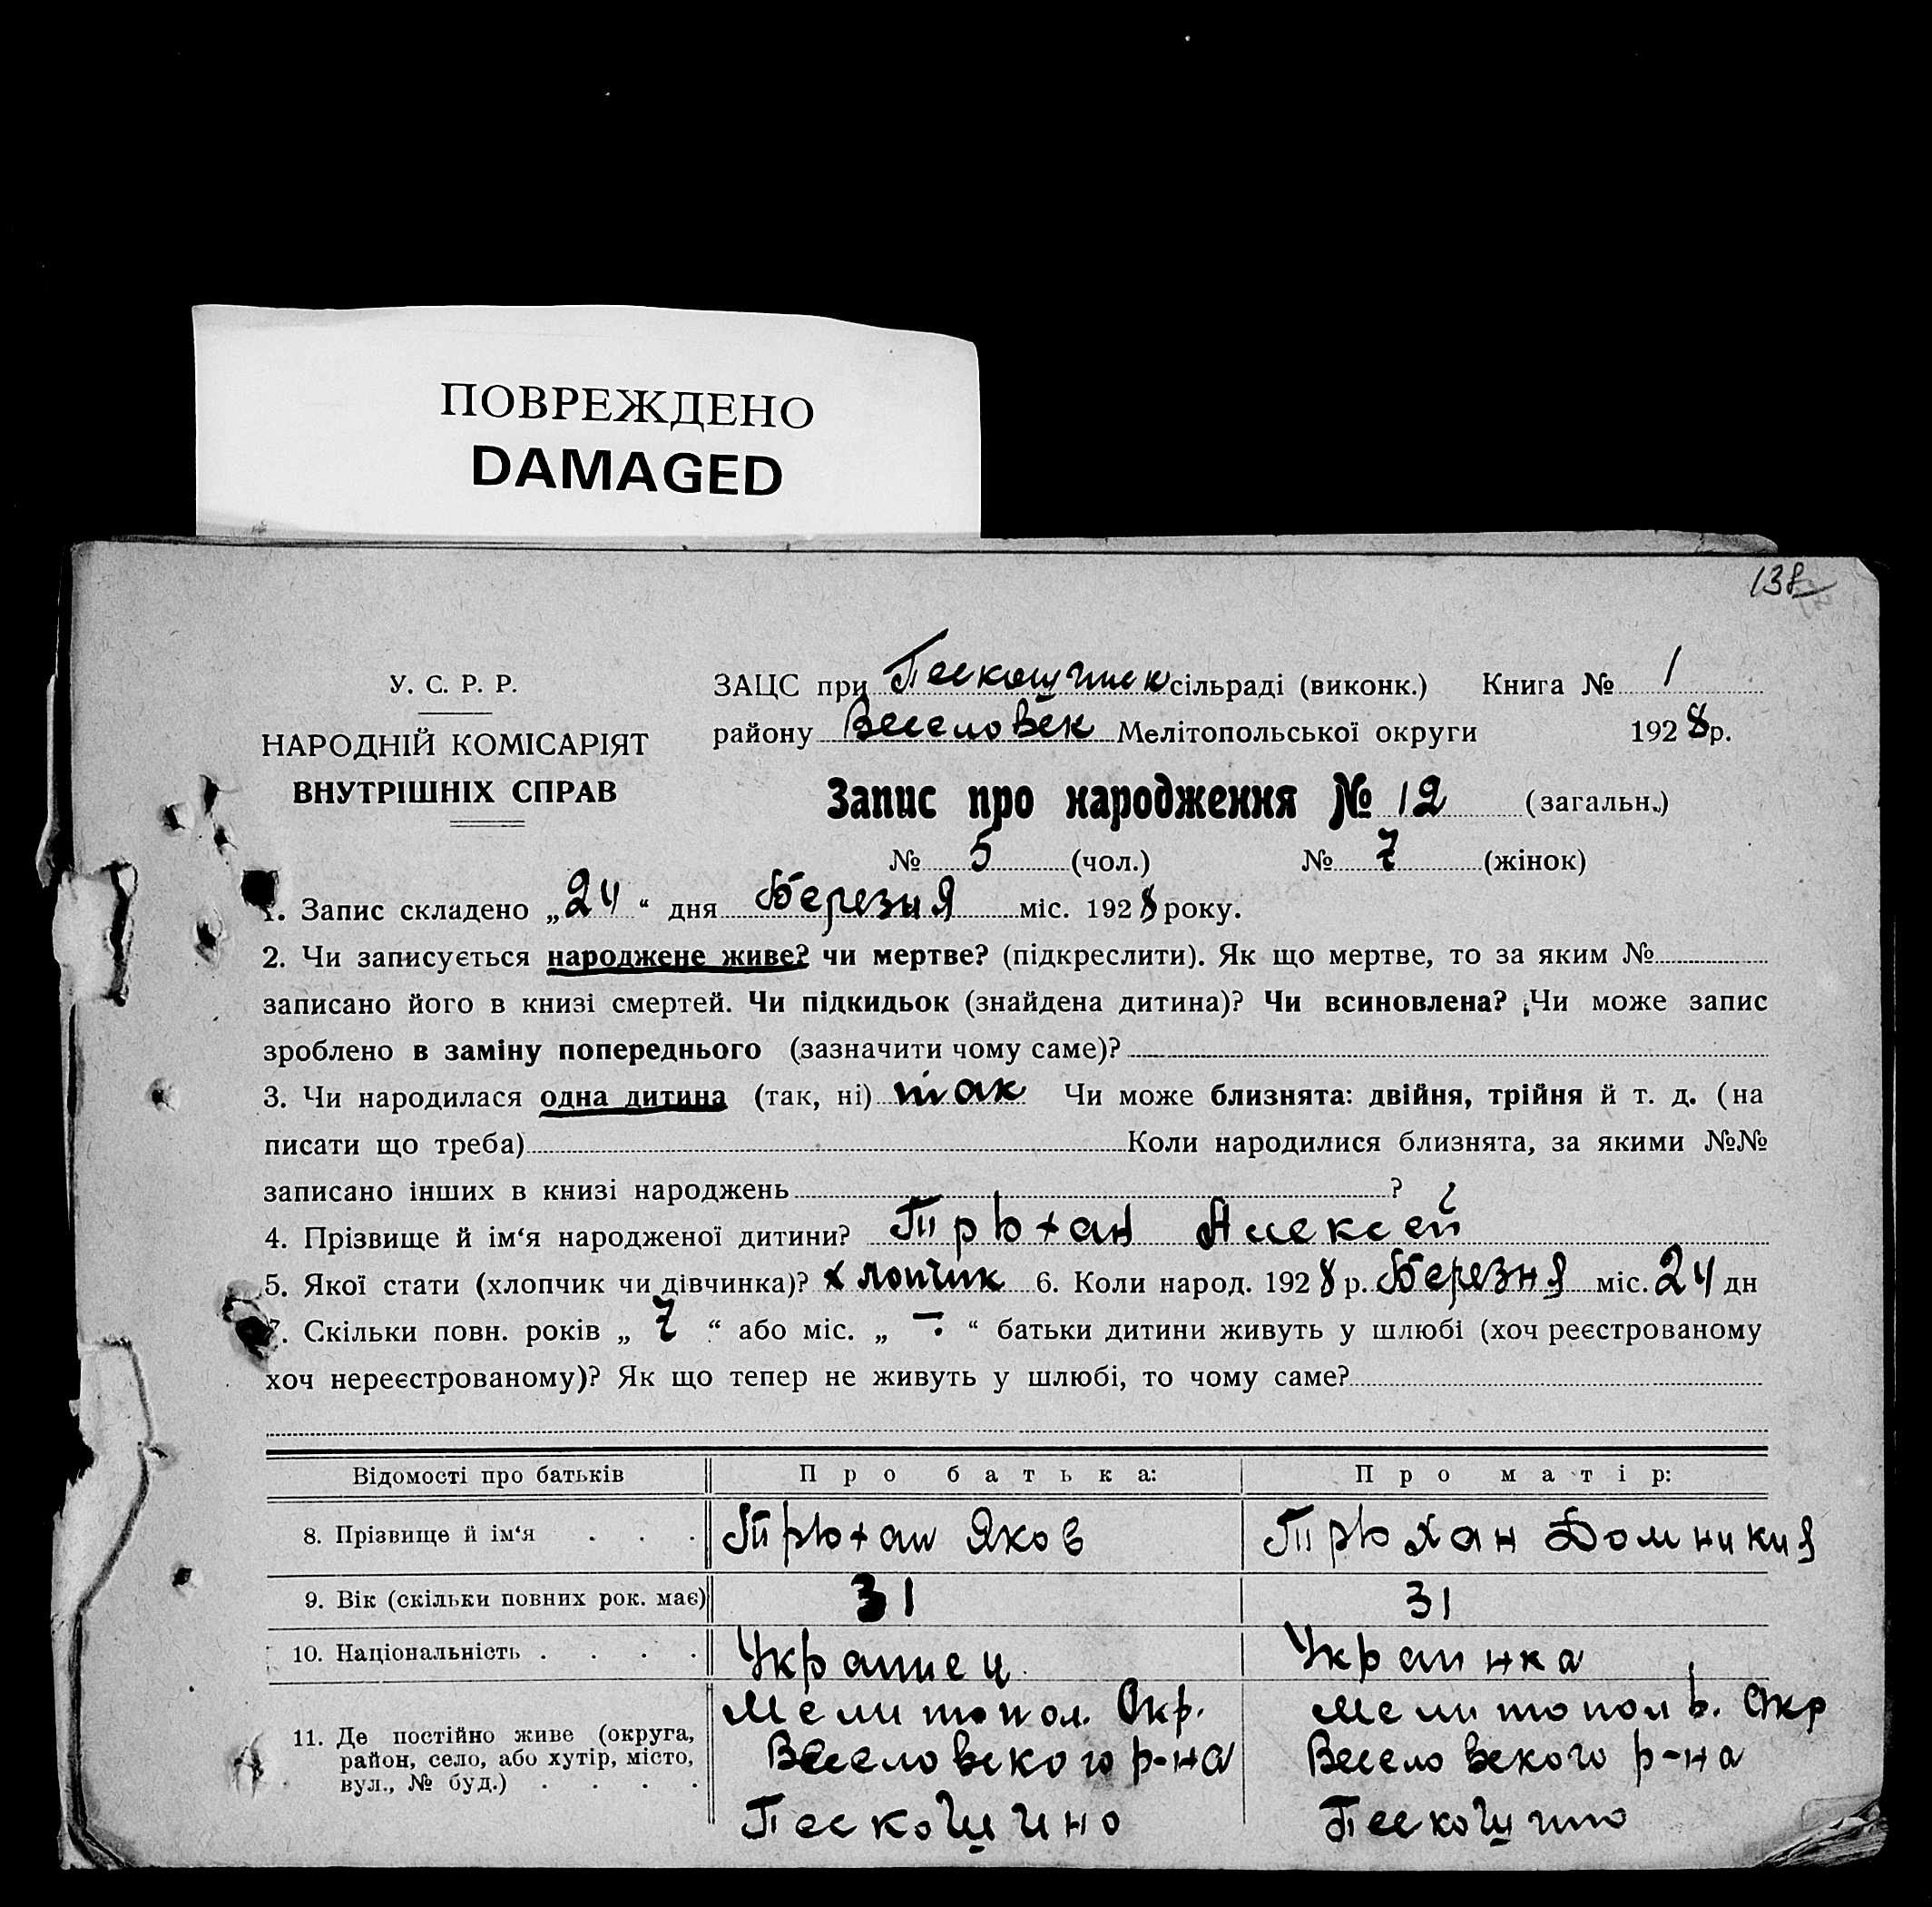 ПОВРЕЖДЕНО
DAMAGED
138
У. С. Р. Р.
НАРОДНІЙ КОМІСАРІЯТ
ВНУТРІШНІХ СПРАВ
ЗАЦС при Пескошинск сільраді (виконк.) Книга № 1
району Веселовск Мелітопольської округи 1928 р.
Запис про народження № 12 (загальн.)
№ 5 (чол.) № 7 (жінок)
1. Запис складено „24“ дня Березня міс. 1928 року.
2. Чи записується народжене живе? чи мертве? (підкреслити). Як що мертве, то за яким №
записано його в книзі смертей. Чи підкидьок (знайдена дитина)? Чи всиновлена? Чи може запис
зроблено в заміну попереднього (зазначити чому саме)?
3. Чи народилася одна дитина (так, ні) так Чи може близнята: двійня, трійня й т. д. (на
писати що треба) Коли народилися близнята, за якими №№
записано інших в книзі народжень ?
4. Прізвище й ім‘я народженої дитини? Трюхан Алексей
5. Якої стати (хлопчик чи дівчинка)? хлопчик 6. Коли народ. 1928 р. Березня міс. 24 дн
7. Скільки повн. років „7“ або міс. „—“ батьки дитини живуть у шлюбі (хоч реєстрованому
хоч нереєстрованому)? Як що тепер не живуть у шлюбі, то чому саме?
Відомості про батьків Про батька: Про матір:
8. Прізвище й ім‘я . . . Трюхан Яков Трюхан Домникия
9. Вік (скільки повних рок. має) 31 31
10. Національність . . . . Украинец Украинка
11. Де постійно живе (округа, район, село, або хутір, місто, вул., № буд.) . . . . Мелитопол. Окр. Мелитополь. Окр
Веселовского р-на Веселовского р-на
Пескошино Пескошино